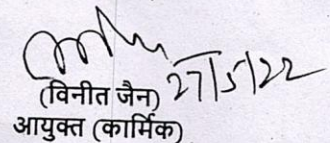 27/5/22
(विनीत जैन)
आयुक्त (कार्मिक)